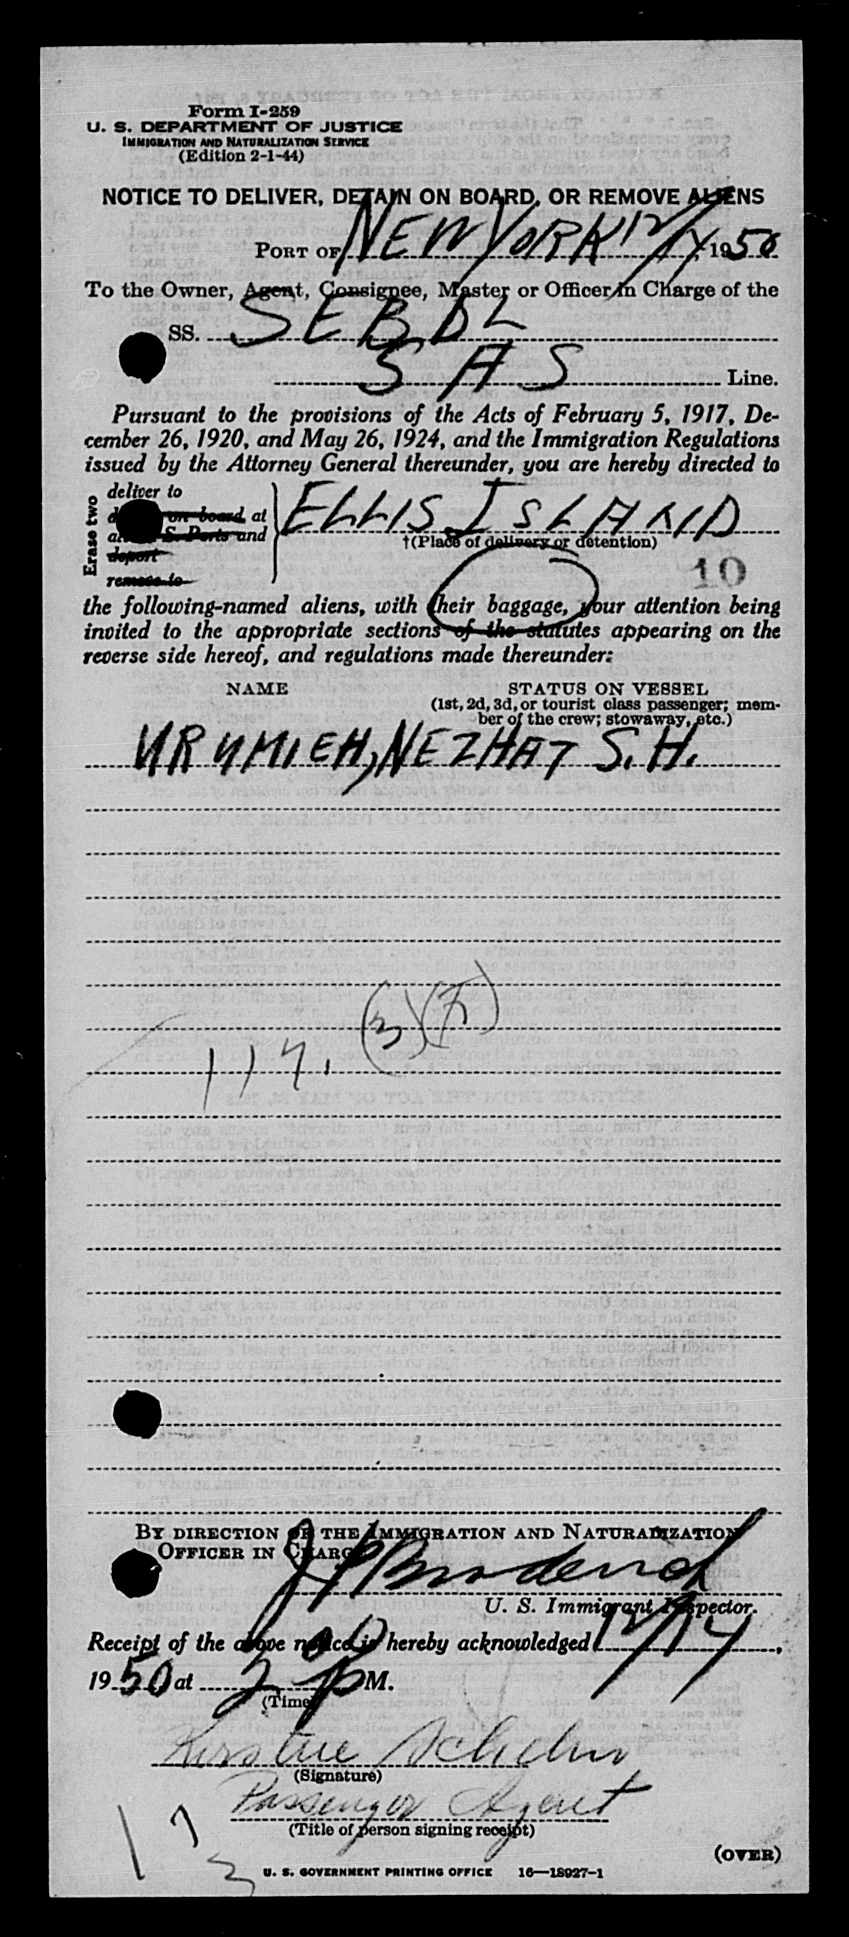 Form I-259
U. S. DEPARTMENT OF JUSTICE
IMMIGRATION AND NATURALIZATION SERVICE
(Edition 2-1-44)
NOTICE TO DELIVER, DETAIN ON BOARD, OR REMOVE ALIENS
PORT OF NEW YORK 12/14, 1950
To the Owner, Agent, Consignee, Master or Officer in Charge of the
SS. SEBDL
SAS Line.
Pursuant to the provisions of the Acts of February 5, 1917, De-
cember 26, 1920, and May 26, 1924, and the Immigration Regulations
issued by the Attorney General thereunder, you are hereby directed to
Erase two
deliver to
on board at
U. S. Ports and
deport
remove to
ELLIS ISLAND
†(Place of delivery or detention)
10
the following-named aliens, with their baggage, your attention being
invited to the appropriate sections of the statutes appearing on the
reverse side hereof, and regulations made thereunder:
NAME STATUS ON VESSEL
(1st, 2d, 3d, or tourist class passenger; mem-
ber of the crew; stowaway, etc.)
URUMIEH, NEZHAT S. H.
117. (3)
BY DIRECTION OF THE IMMIGRATION AND NATURALIZATION
OFFICER IN CHARGE
U. S. Immigrant Inspector.
Receipt of the above notice is hereby acknowledged 12/14,
1950 at 2 00 P M.
(Time)
(Signature)
Passenger Agent
(Title of person signing receipt)
(OVER)
U. S. GOVERNMENT PRINTING OFFICE 16—18927-1